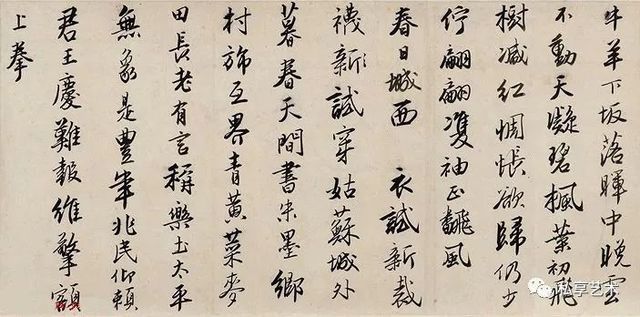 牛羊下坂落暉中晚雲
不動天凝碧楓葉初飛
樹減紅惆悵欲歸仍少
佇翩翩雙袖正飜風
春日城西 衣試新裁
襪新試穿姑蘇城外
暮春天間書朱墨鄉
村旆互界青黃菜麥
田長老有言稱樂土太平
無象是豐年兆民仰賴
君王慶難報維擎額
上拳
私享艺术